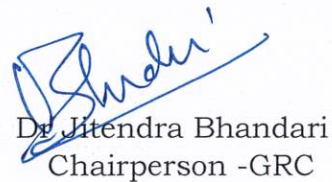 Bhndri
Dr Jitendra Bhandari
Chairperson -GRC